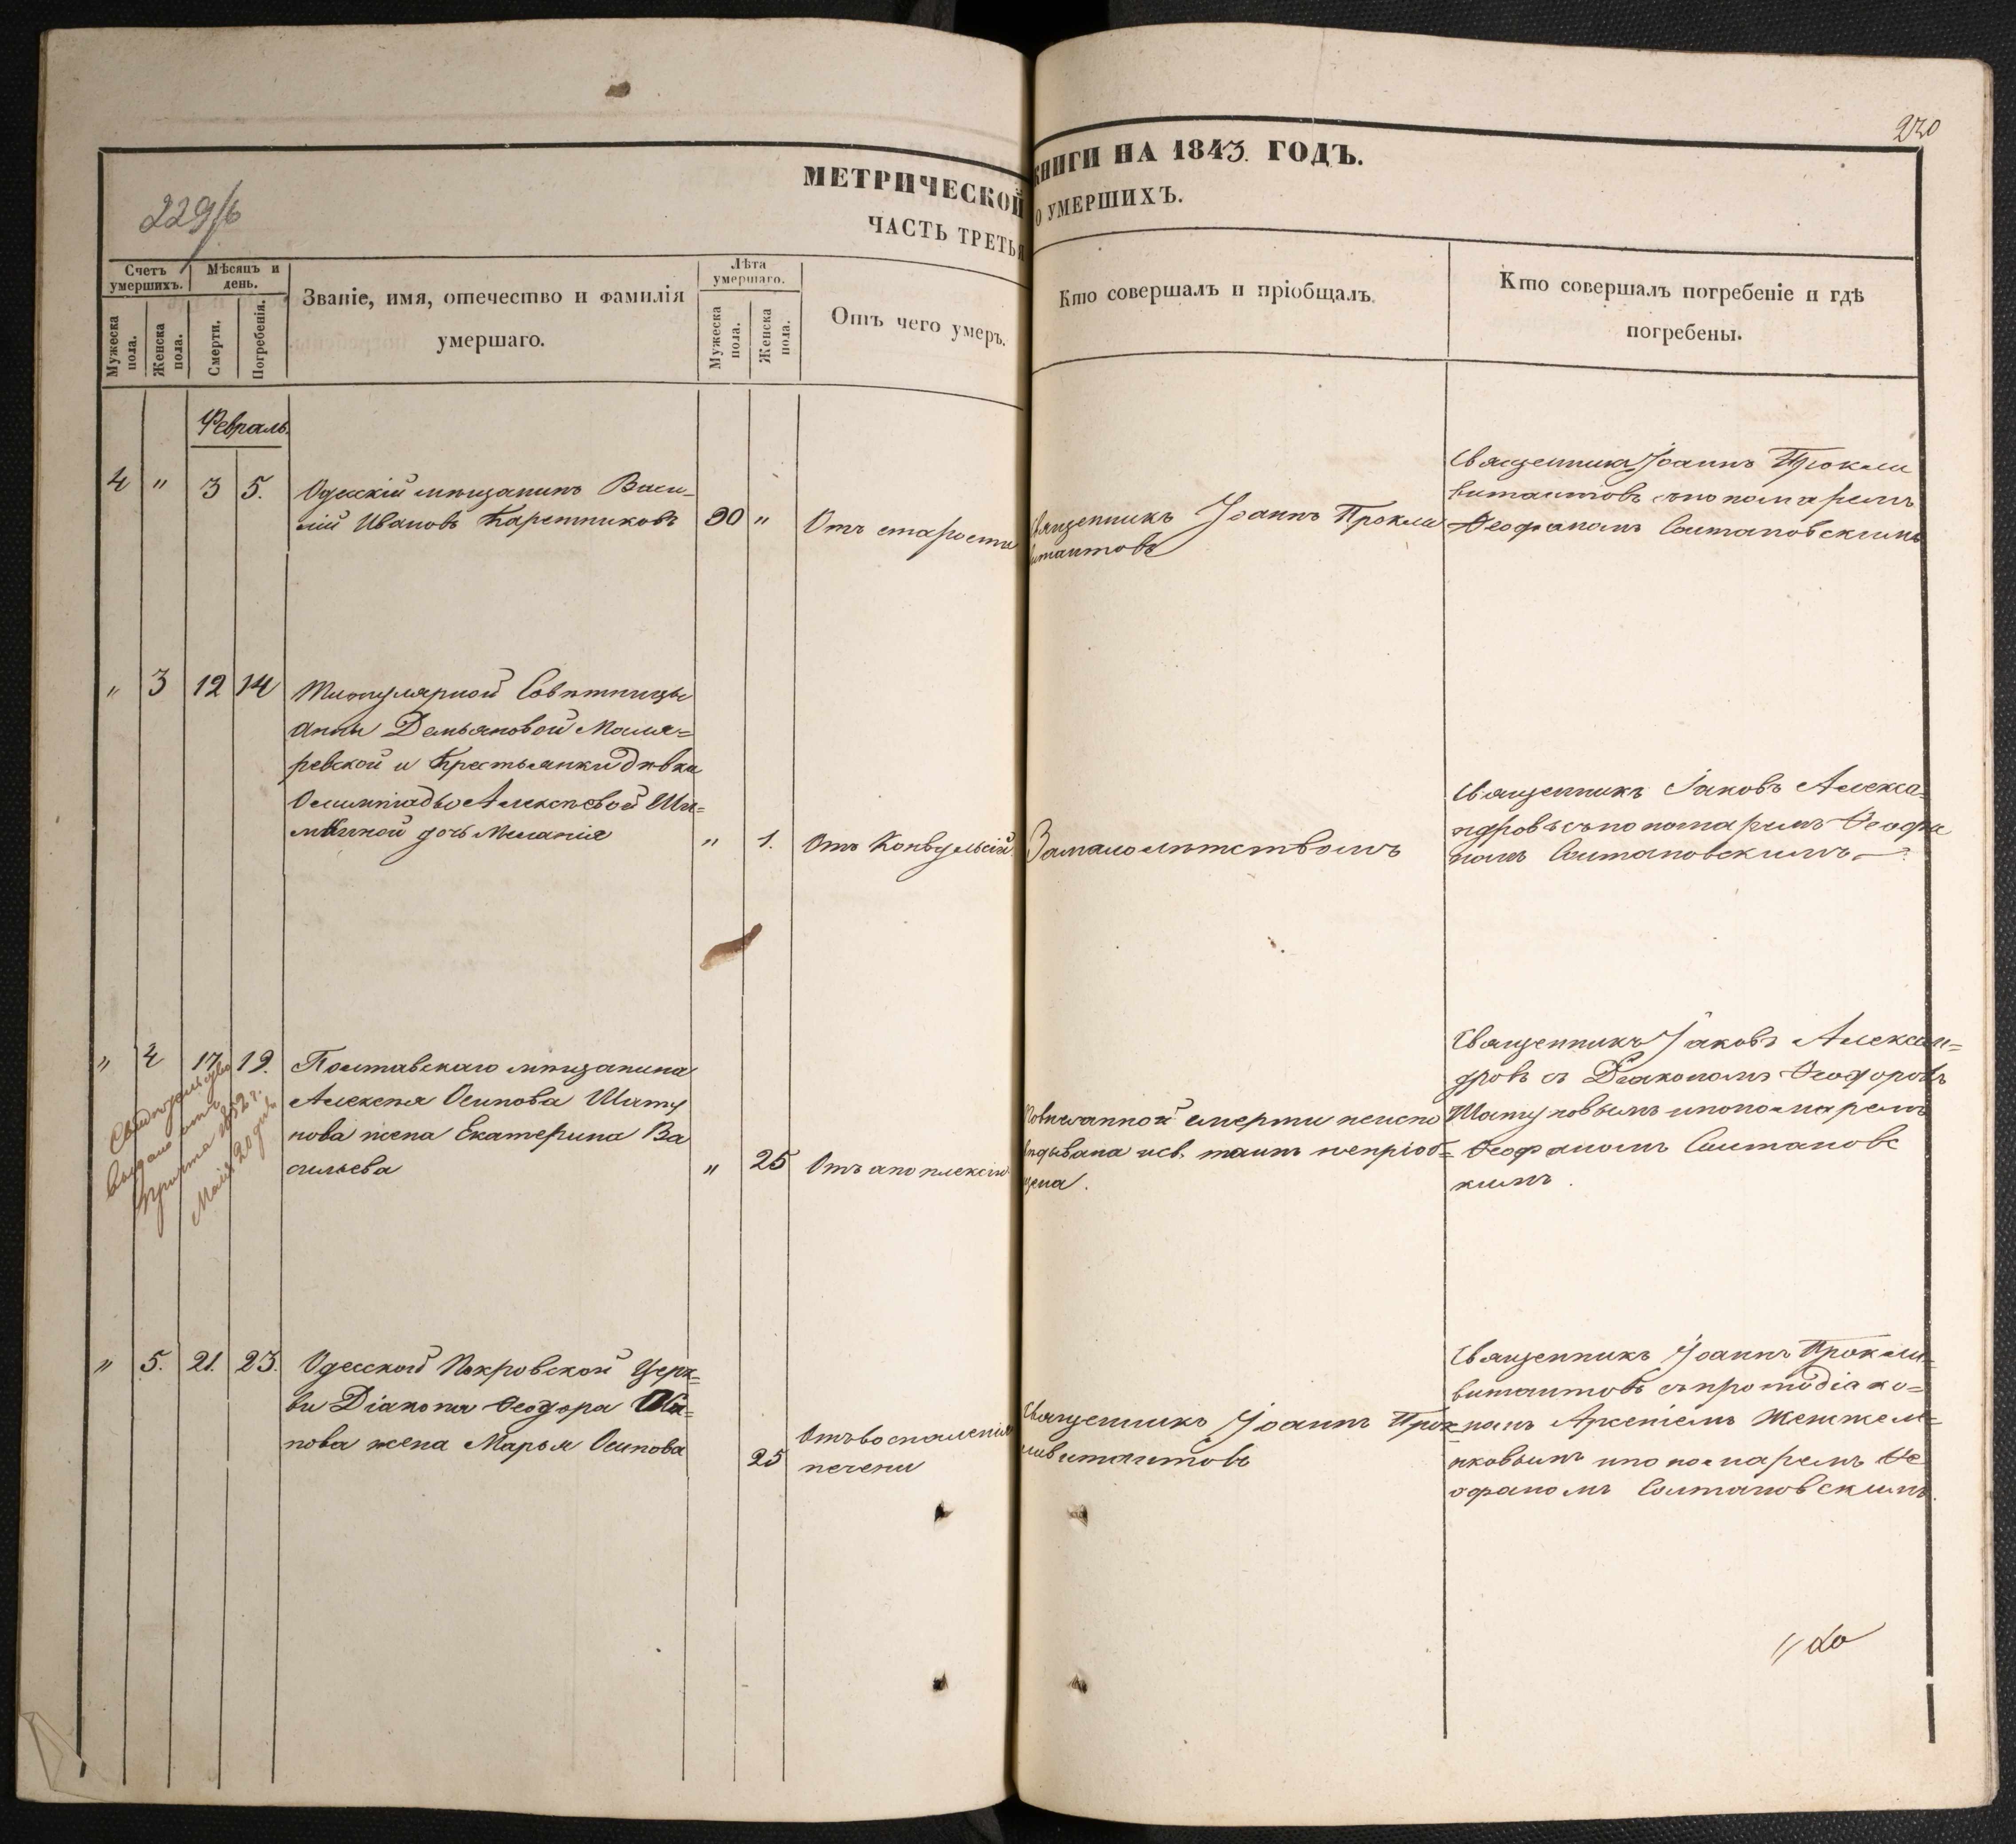 230
229/б
МЕТРИЧЕСКОЙ КНИГИ НА 1843. ГОДЪ.
ЧАСТЬ ТРЕТЬЯ О УМЕРШИХЪ.
Счетъ умершихъ.
Мужеска пола.
Женска пола.
Мѣсяцъ и день.
Смерти.
Погребенія.
Званіе, имя, отечество и фамилія
умершаго.
Лѣта умершаго.
Мужеска пола.
Женска пола.
Отъ чего умеръ.
Кто совершалъ и пріобщалъ.
Кто совершалъ погребеніе и гдѣ
погребены.
Февраль.
4 " 3 5.
Одесскій мѣщанинъ Васи-
лій Ивановъ Каретниковъ
90 "
Отъ старости
Священникъ Іоаннъ Прокли
витантовъ
Священника Іоаннъ Прокли
витантовъ съ пономаремъ
Ѳеофаномъ Солтановскимъ
" 3 12 14
Титулярной Совѣтницы
Анны Демьяновой Маля-
ревской и Крестьянки дѣвки
Олимпіады Алексѣевой
дочь Меланія
" 1.
Отъ Конвульсій
За малолѣтствомъ
Священникъ Іаковъ Алекса-
ндровъ съ пономаремъ Ѳеофа
номъ Солтановскимъ
" 4 17 19.
Полтавскаго мѣщанина
Алексѣя Осипова Шату
нова жена Екатерина Ва
сильева
" 25
Отъ апоплексіи
неиспо
вѣдывана и св. таинъ непріоб-
щена.
Священникъ Іаковъ Алексан-
дровъ съ Діакономъ Ѳеодоромъ
Шатуновымъ и пономаремъ
Ѳеофаномъ Солтановс
кимъ.
Свидѣтельство
выдано отъ
причта 1852 г.
Маія 20 дня
" 5. 21. 23.
Одесской Покровской Церк-
ви Діакона Ѳеодора
нова жена Марья Осипова
25
Отъ воспаленія
печени
Священникъ Іоаннъ Прок-
ливитантовъ
Священникъ Іоаннъ Прокли-
витантовъ съ протодіако-
номъ Арсеніемъ
и пономаремъ Ѳе
офаномъ Солтановскимъ.